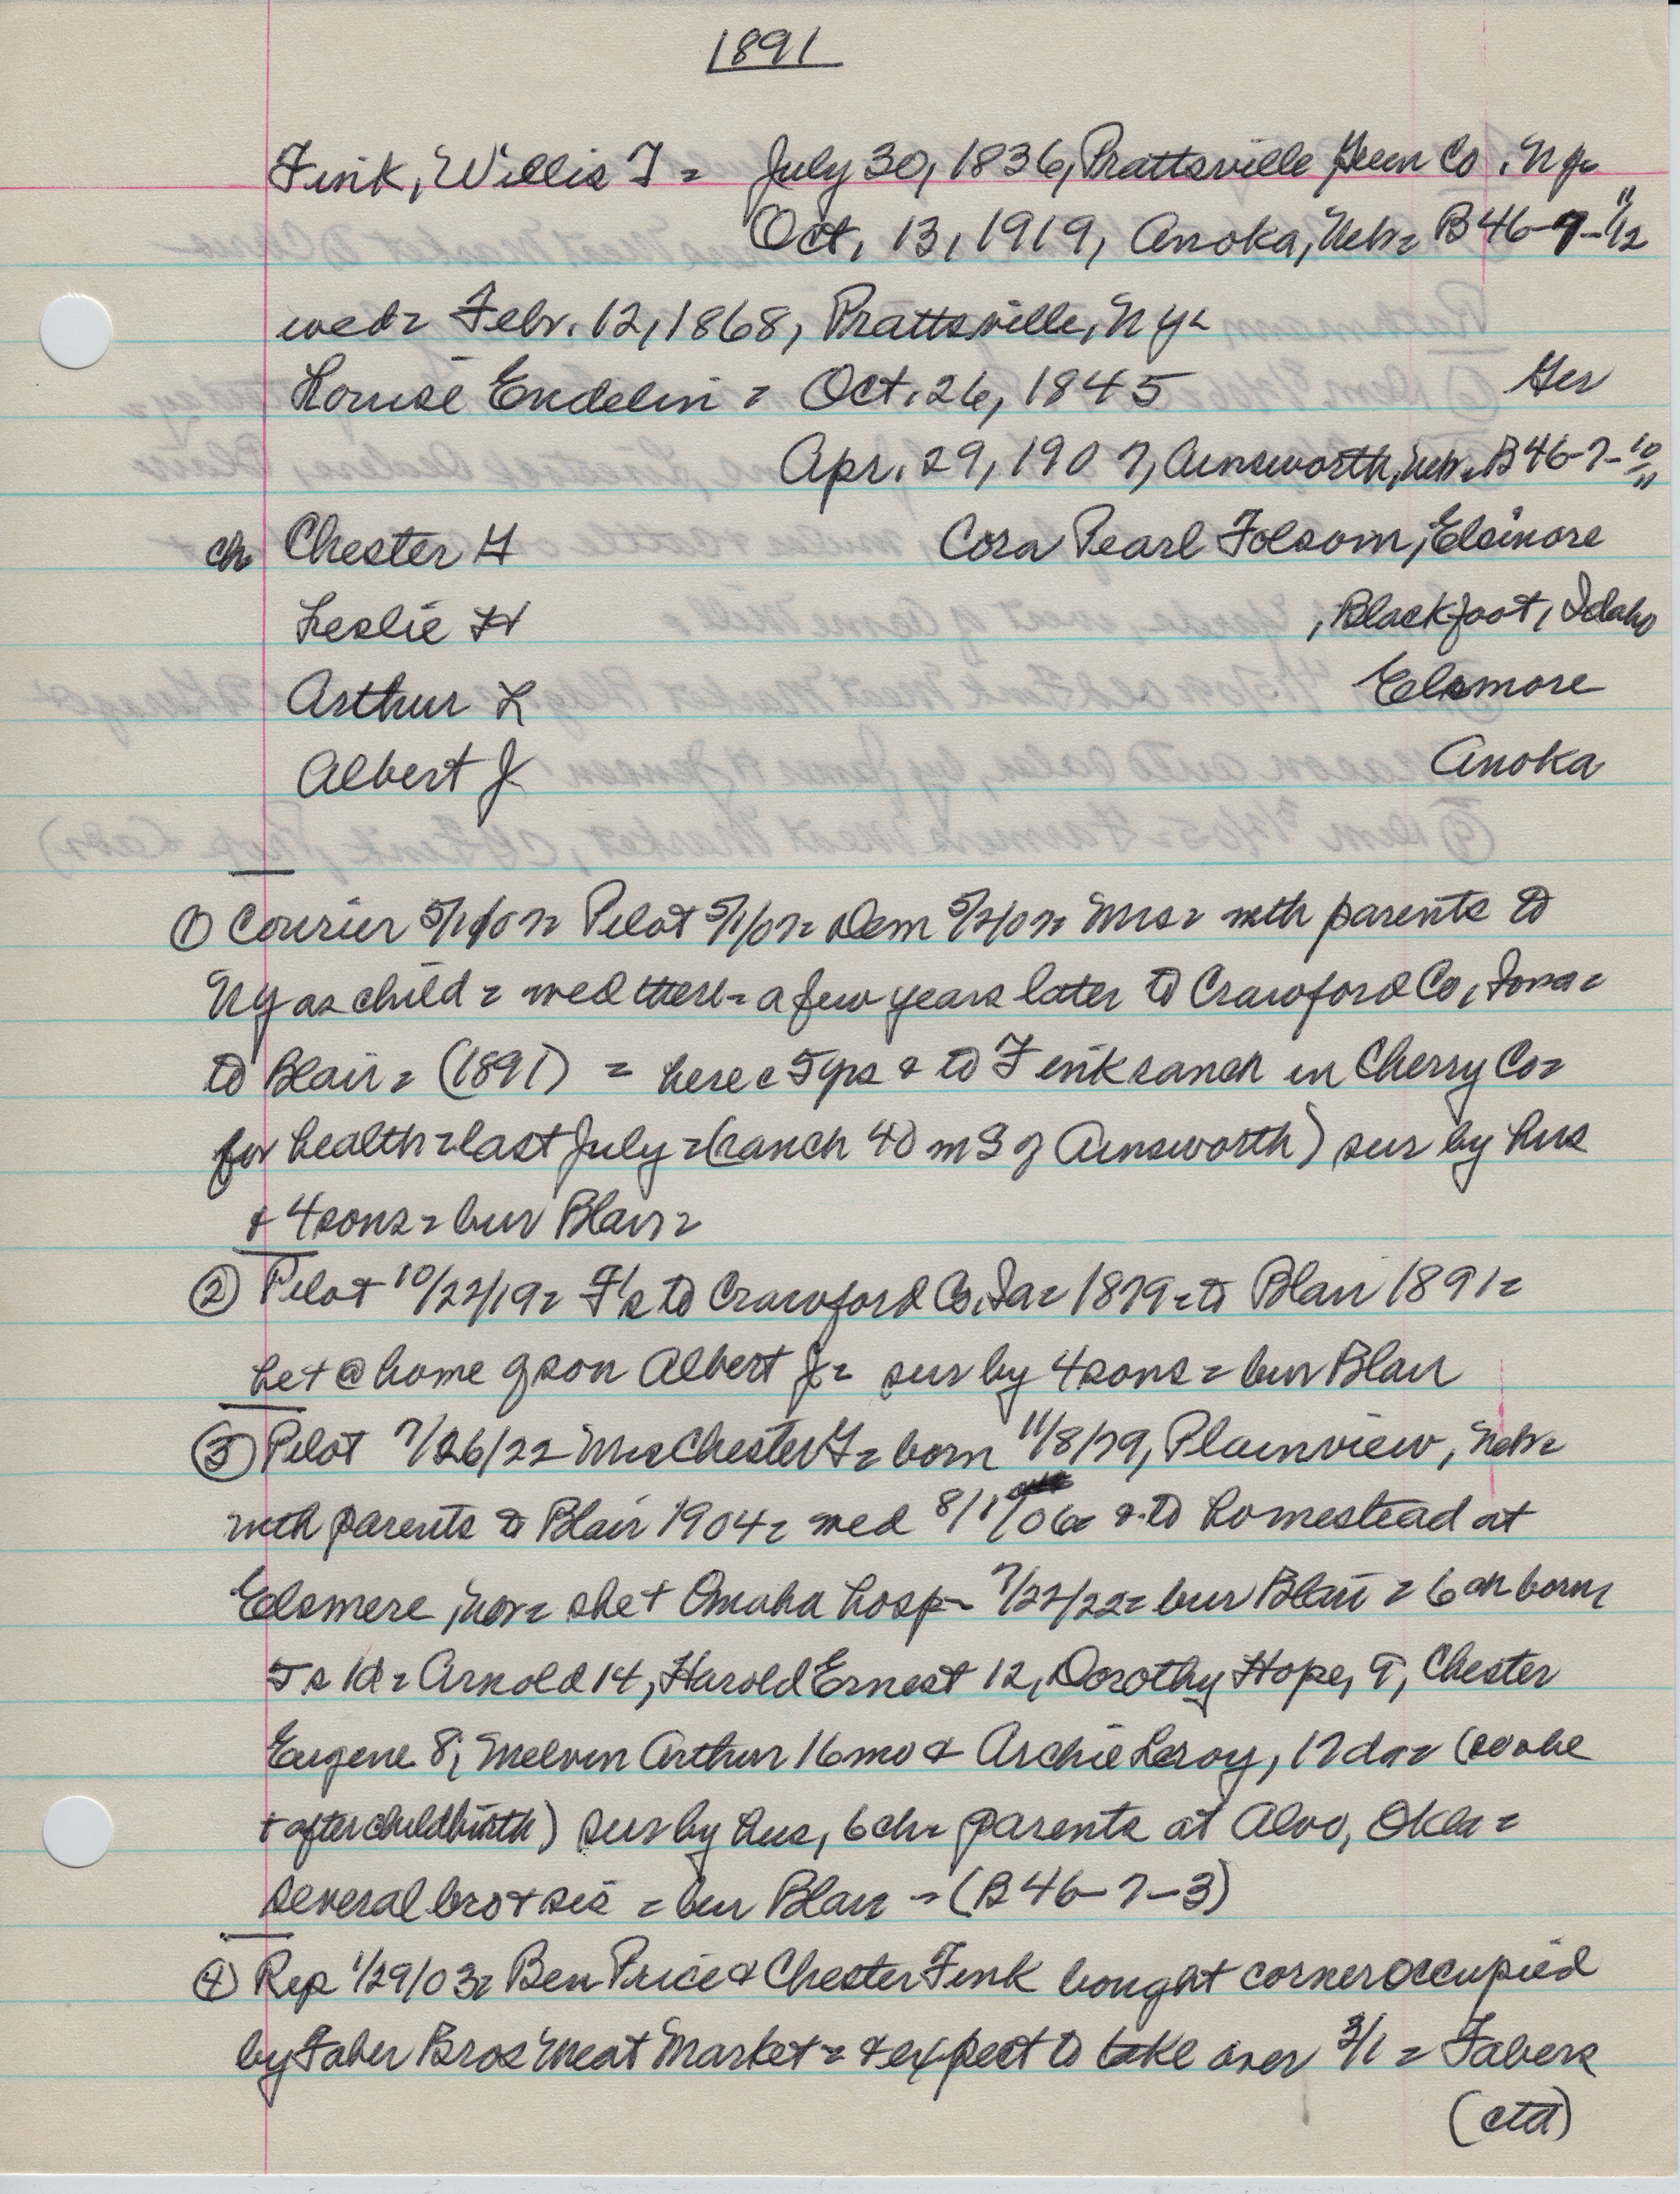 1891
Fink, Willis T = July 30, 1836, Prattsville Green Co, Ny=
Oct. 13, 1919, Anoka, Neb= B46-7-11/12
wed= Febr. 12, 1868, Prattsville, Ny=
Louise Endelin = Oct. 26, 1845 Ger
Apr. 29, 1907, Ainsworth, Neb= B46-7-10/11
ch Chester G Cora Pearl Folsom, Elsinore
Leslie H , Blackfoot, Idaho
Arthur L Elsmore
Albert J Anoka
① Courier 5/1/07= Pilot 5/1/07= Dem 5/2/07= Mrs= with parents to
Ny as child = wed there= a few years later to Crawford Co, Iowa=
to Blair= (1891) = here 5 yrs & to Fink ranch in Cherry Co=
for health=last July=(ranch 40 m S of Ainsworth) sur by hus
& 4 sons= bur Blair=
② Pilot 10/22/19= F's to Crawford Co, Ia= 1879=to Blair 1891=
he + @ home of son Albert J= sur by 4 sons= bur Blair
③ Pilot 7/26/22 Mrs Chester G= born 11/8/79, Plainview, Neb=
with parents to Blair 1904= wed 8/1/06= & to homestead at
Elsmere, = she + Omaha hosp- 7/22/22= bur Blair = 6 ch born,
5s 1d= Arnold 14, Harold Ernest 12, Dorothy Hope, 9, Chester
Eugene 8, Melvin Arthur 16 mo & Archie Leroy, 17 da= (so she
+ after childbirth) sur by hus, 6 ch= parents at Alvo, Okla=
several bro & sis = bur Blair = (B46-7-3)
④ Rep 1/29/03= Ben Price & Chester Fink bought corner occupied
by Faber Bros Meat Market= & expect to take over 3/1 = Fabers
(ctd)